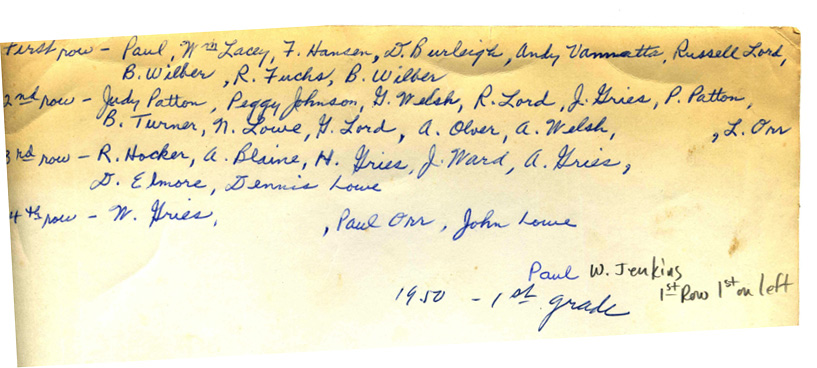 First row - Paul, Wm Lacey, F. Hansen, D. Burleigh, Andy Vannatta, Russell Lord,
B. Wilber, R. Fuchs, B. Wilber
2nd row - Judy Patton, Peggy Johnson, G. Welsh, R. Lord, J. Gries, P. Patton,
B. Turner, N. Lowe, G. Lord, A. Olver, A. Welsh, , L. Orr
3rd row - R. Hocker, A. Blaine, H. Gries, J. Ward, A. Gries,
D. Elmore, Dennis Lowe
4th row - W. Gries, , Paul Orr, John Lowe
Paul W. Jenkins
1st Row 1st on left
1950 - 1st grade